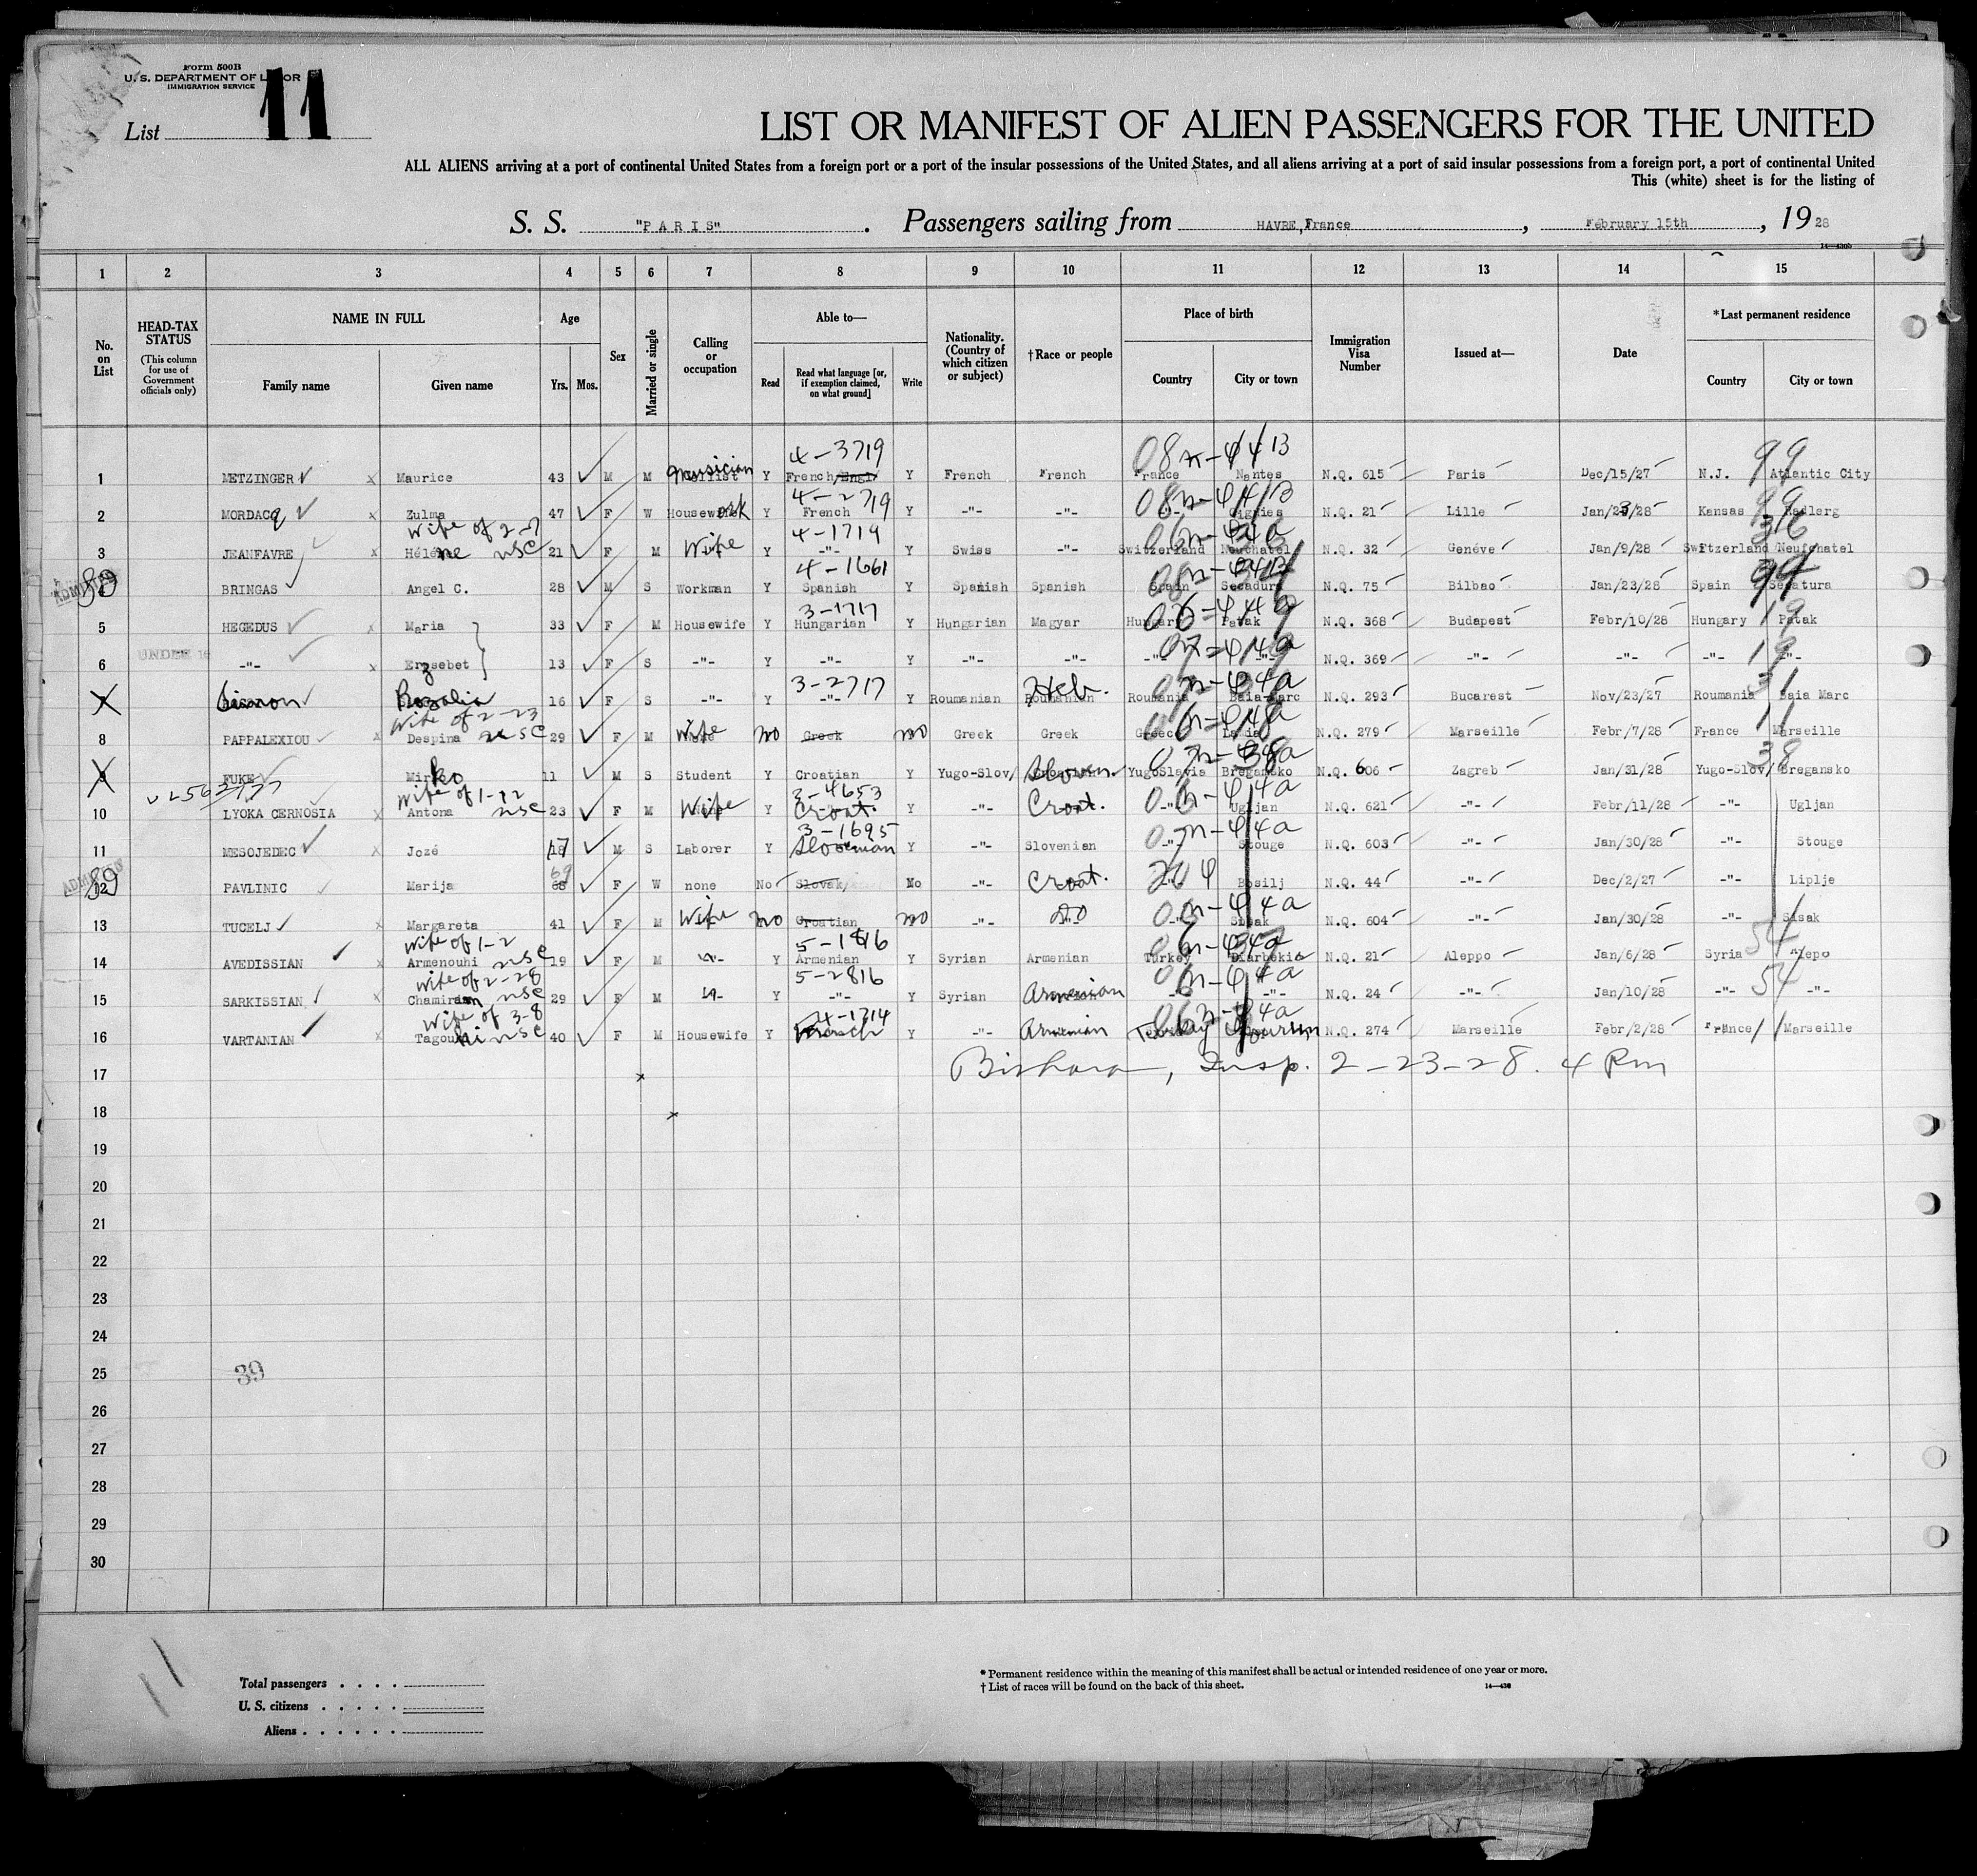 Form 500B
U. S. DEPARTMENT OF LABOR
IMMIGRATION SERVICE
List 11
LIST OR MANIFEST OF ALIEN PASSENGERS FOR THE UNITED
ALL ALIENS arriving at a port of continental United States from a foreign port or a port of the insular possessions of the United States, and all aliens arriving at a port of said insular possessions from a foreign port, a port of continental United
This (white) sheet is for the listing of
S. S. "PARIS" . Passengers sailing from HAVRE, France , February 15th , 19 28
14—430b
1 2 3 4 5 6 7 8 9 10 11 12 13 14 15
No. on List HEAD-TAX STATUS (This column for use of Government officials only) NAME IN FULL Family name Given name Age Yrs. Mos. Sex Married or single Calling or occupation Able to— Read Read what language [or, if exemption claimed, on what ground] Write Nationality. (Country of which citizen or subject) †Race or people Place of birth Country City or town Immigration Visa Number Issued at— Date *Last permanent residence Country City or town
4-3719
1 METZINGER Maurice 43 M M musician Y French Y French French France Nantes N.Q. 615 Paris Dec/15/27 N.J. 99 Atlantic City
4-2719
2 MORDACQ Zulma 47 F W Housework Y French Y -"- -"- N.Q. 21 Lille Jan/23/28 Kansas 99
Wife of 2-7 4-1719
3 JEANFAVRE Hélène nsc 21 F M Wife Y -"- Y Swiss -"- Switzerland Neuchatel N.Q. 32 Genéve Jan/9/28 Switzerland Neufchatel
ADMITTED 4-1661
4 BRINGAS Angel C. 28 M S Workman Y Spanish Y Spanish Spanish Spain Secadura N.Q. 75 Bilbao Jan/23/28 Spain 99
3-1717
5 HEGEDUS Maria 33 F M Housewife Y Hungarian Y Hungarian Magyar Hungary Patak N.Q. 368 Budapest Febr/10/28 Hungary 19 Patak
UNDER 16
6 -"- Erzsebet 13 F S -"- Y -"- Y -"- -"- -"- -"- N.Q. 369 -"- -"- -"- 19 -"-
3-2717
7 Simon Rozalia 16 F S -"- Y -"- Y Roumanian Heb. Roumania Baia-Marc N.Q. 293 Bucarest Nov/23/27 Roumania 31 Baia Marc
Wife of 2-23
8 PAPPALEXIOU Despina nsc 29 F M Wife no Greek no Greek Greek Greece Lamia N.Q. 279 Marseille Febr/7/28 France 11 Marseille
9 FUKE Mirko 11 M S Student Y Croatian Y Yugo-Slov/ Sloven. YugoSlavia Bregansko N.Q. 606 Zagreb Jan/31/28 Yugo-Slov/ 38 Bregansko
Wife of 1-12 3-4653
10 LYOKA CERNOSIA Antona nsc 23 F M Wife Y Croat. Y -"- Croat. -"- Ugljan N.Q. 621 -"- Febr/11/28 -"- Ugljan
3-1695
11 MESOJEDEC Jozé 17 M S Laborer Y Slovenian Y -"- Slovenian -"- Stouge N.Q. 603 -"- Jan/30/28 -"- Stouge
ADMITTED
12 PAVLINIC Marija 69 F W none No Slovak/ No -"- Croat. -"- Bosilj N.Q. 44 -"- Dec/2/27 -"- Liplje
13 TUCELJ Margareta 41 F M Wife no Croatian no -"- do -"- Sisak N.Q. 604 -"- Jan/30/28 -"- Sisak
Wife of 1-2 5-1816
14 AVEDISSIAN Armenouhi nsc 19 F M -"- Y Armenian Y Syrian Armenian Turkey Diarbekia N.Q. 21 Aleppo Jan/6/28 Syria 54 Alepo
Wife of 2-28 5-2816
15 SARKISSIAN Chamiram nsc 29 F M -"- Y -"- Y Syrian Armenian -"- -"- N.Q. 24 -"- Jan/10/28 -"- 54 -"-
Wife of 3-8 4-1714
16 VARTANIAN Tagouhi nsc 40 F M Housewife Y French Y -"- Armenian Turkey N.Q. 274 Marseille Febr/2/28 France 11 Marseille
17 Bishara, Insp. 2-23-28. 4 Pm
18
19
20
21
22
23
24
25 39
26
27
28
29
30
11
Total passengers
U. S. citizens
Aliens
* Permanent residence within the meaning of this manifest shall be actual or intended residence of one year or more.
† List of races will be found on the back of this sheet.
14—430